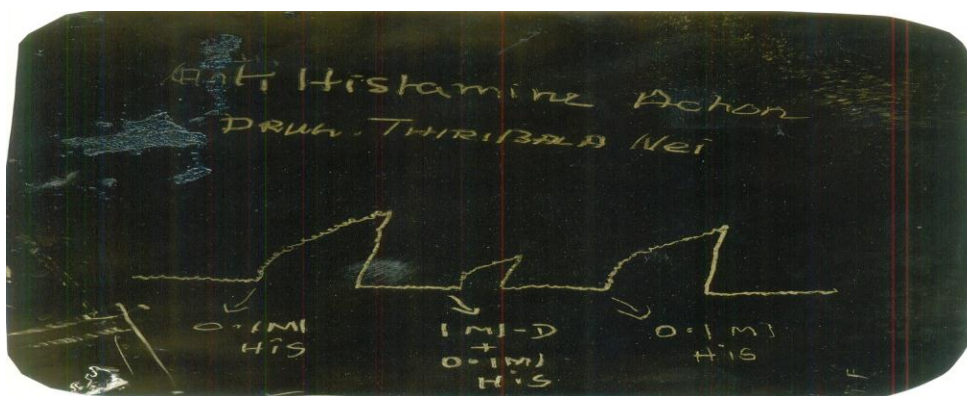 Anti Histamine Action
DRUG. THIRIBALA Nei
0.1 Ml
His
1 Ml-D
+
0.1 Ml
His
0.1 Ml
His